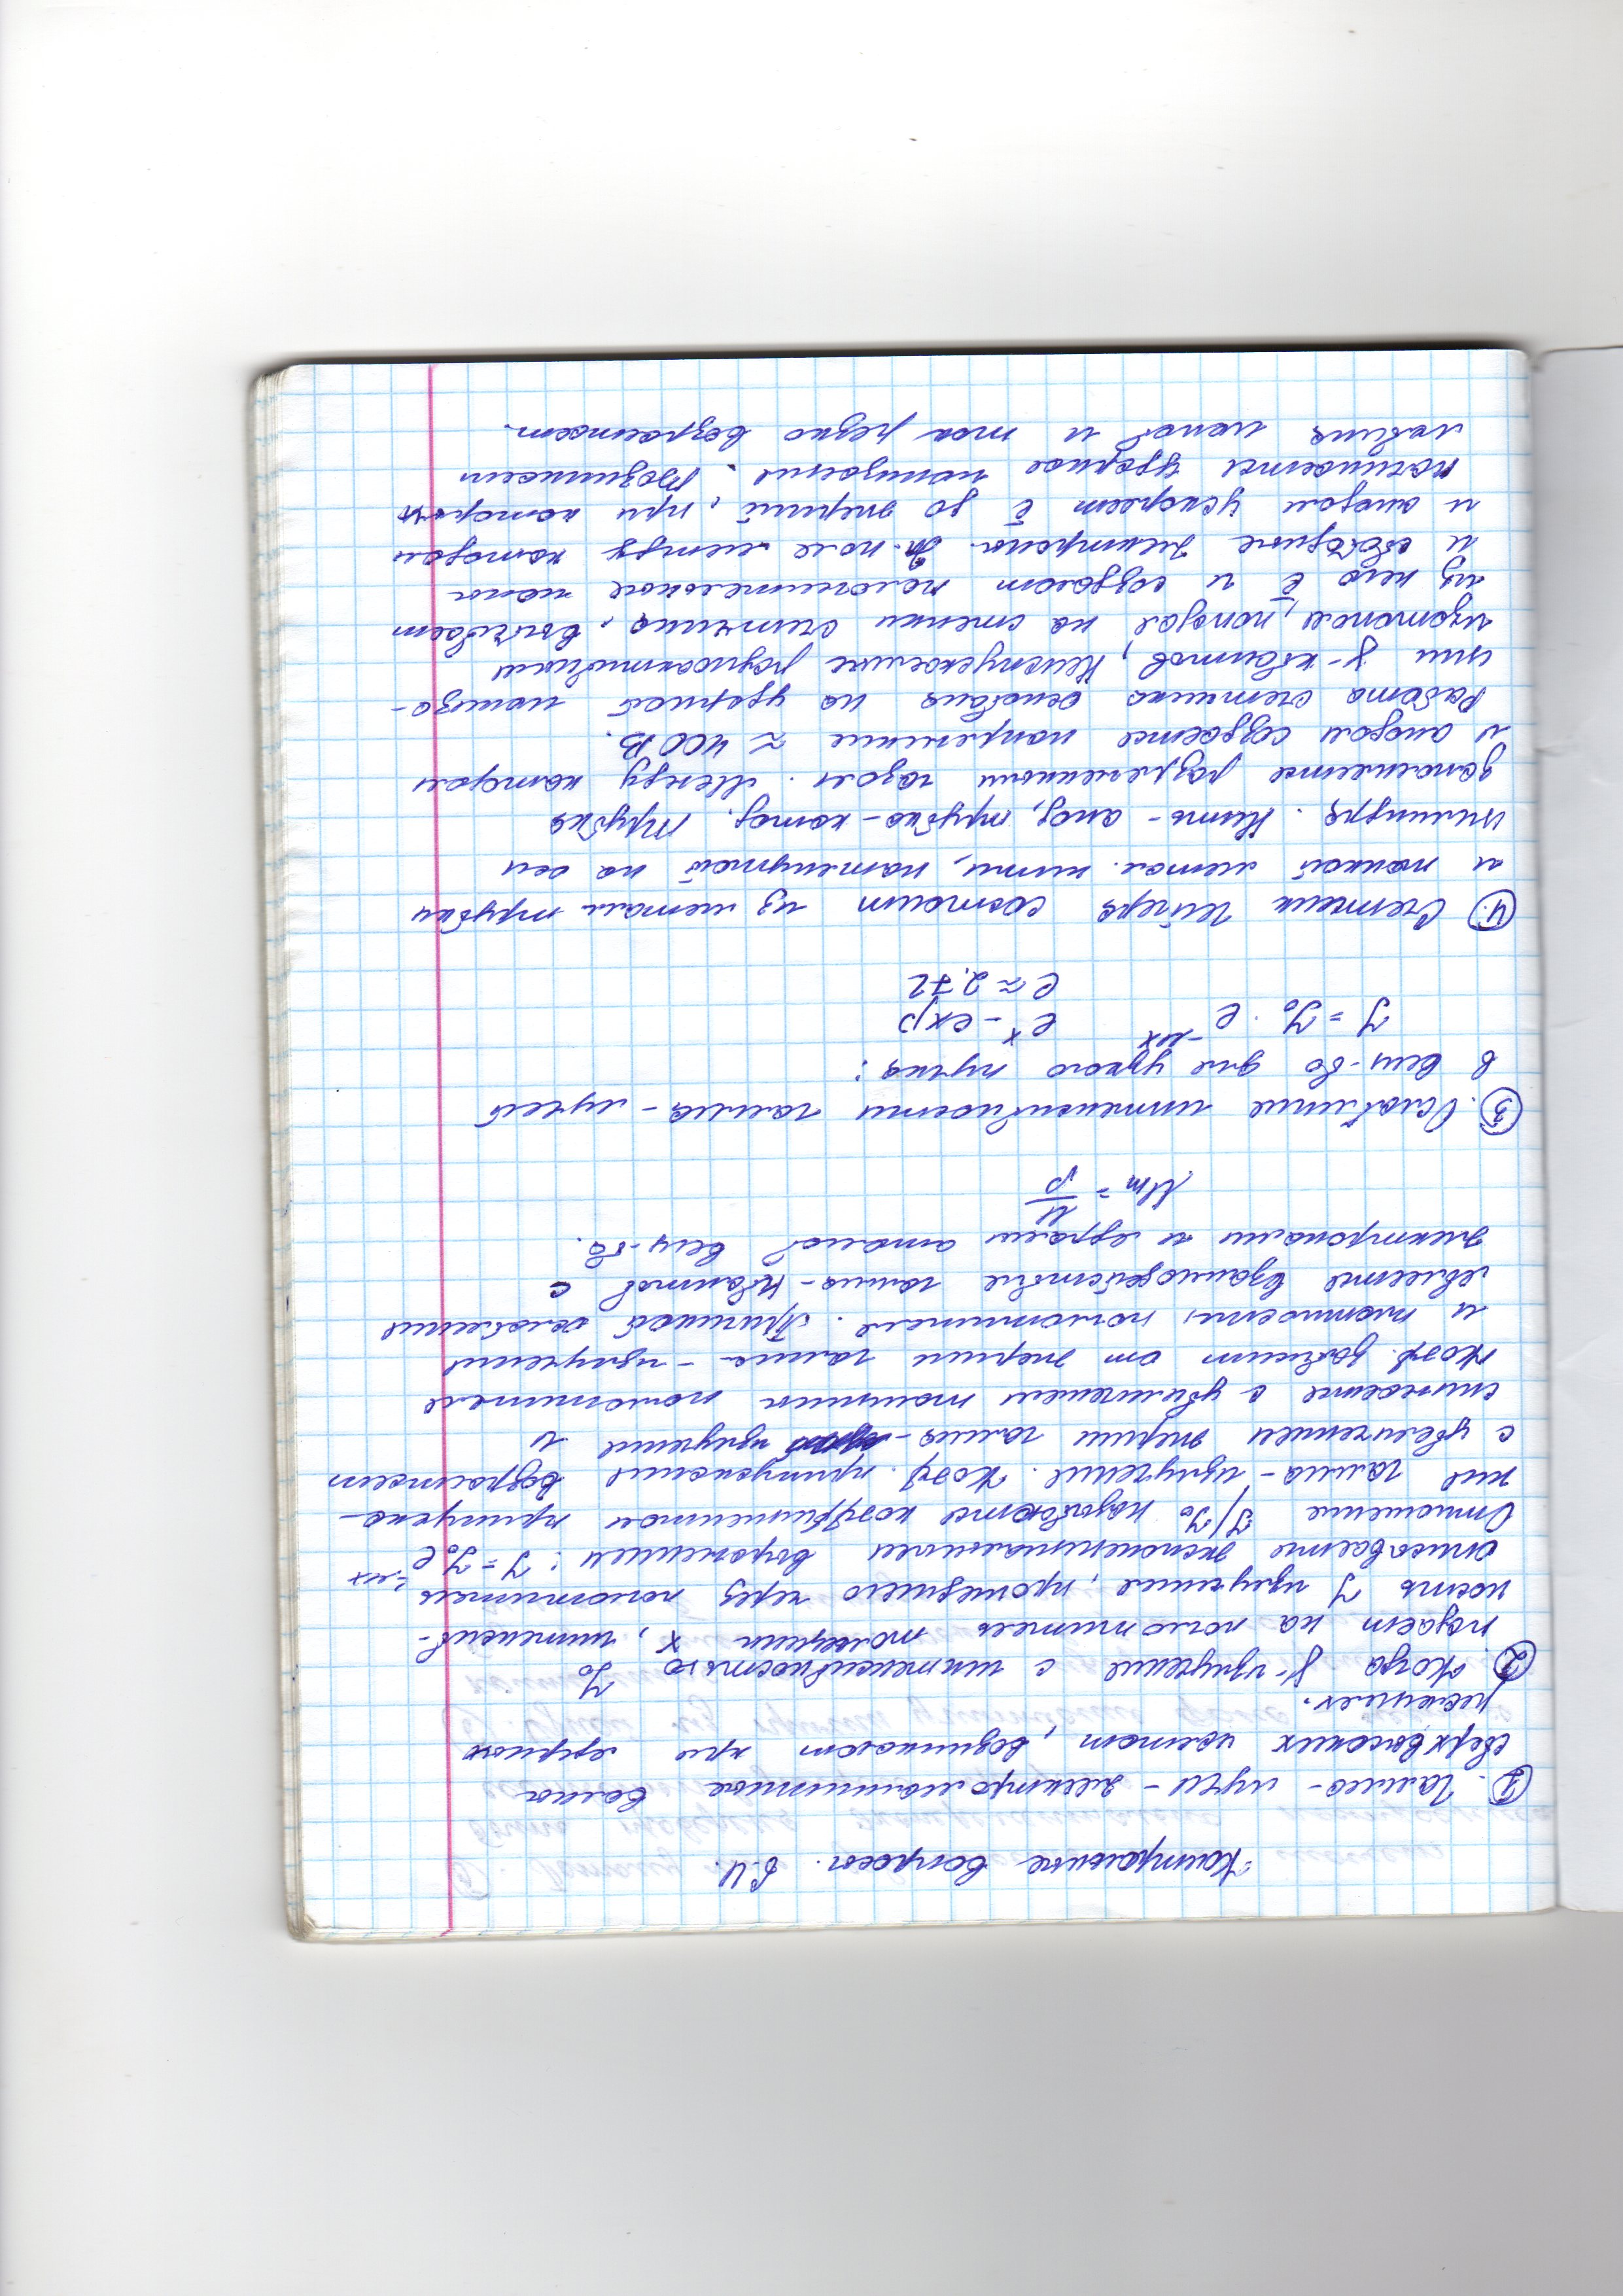 Контрольные вопросы. 6.4.
1. Гамма-лучи - электромагнитные волны
сверхвысоких частот, возникают при ядерных
реакциях.
2. Когда γ-излучение с интенсивностью J₀
падает на поглотитель толщины x, интенсив-
ность J излучения, прошедшего через поглотитель,
описывается экспоненциальным выражением: J = J₀e^(-μx)
Отношение J/J₀ называются коэффициентом припуска-
ния гамма-излучения. Коэф. припускания возрастает
с увеличением энергии гамма- излучения и
снижается с увеличением толщины поглотителя
Коэф. зависит от энергии гамма-излучения
и плотности поглотителя. Причиной ослабления
является взаимодействие гамма-квантов с
электронами и ядрами атомов вещ-ва.
μm = μ/ρ
3. Ослабление интенсивности гамма-лучей
в вещ-во для узкого пучка:
J = J₀ · e^(-μx) e^x - exp
e ≈ 2.72
4. Счетчик Гейгера состоит из металл трубки
и тонкой метал. нити, натянутой на оси
цилиндра. Нить - анод, трубка - катод. Трубка
заполняется разреженным газом. Между катодом
и анодом создается напряжение ≈ 400 В.
Работа счетчика основана на ударной иониза-
ции γ-квантов, Неиспускаемые радиоактивным
изотопом, попадая на стенки счетчика, выбивает
из него ē и создают положительные ионы
и свободные электроны. Эл. поле между катодом
и анодом ускоряет ē до энергий, при которых
начинается ударная ионизация. Возникает
лавина ионов и ток резко возрастает.